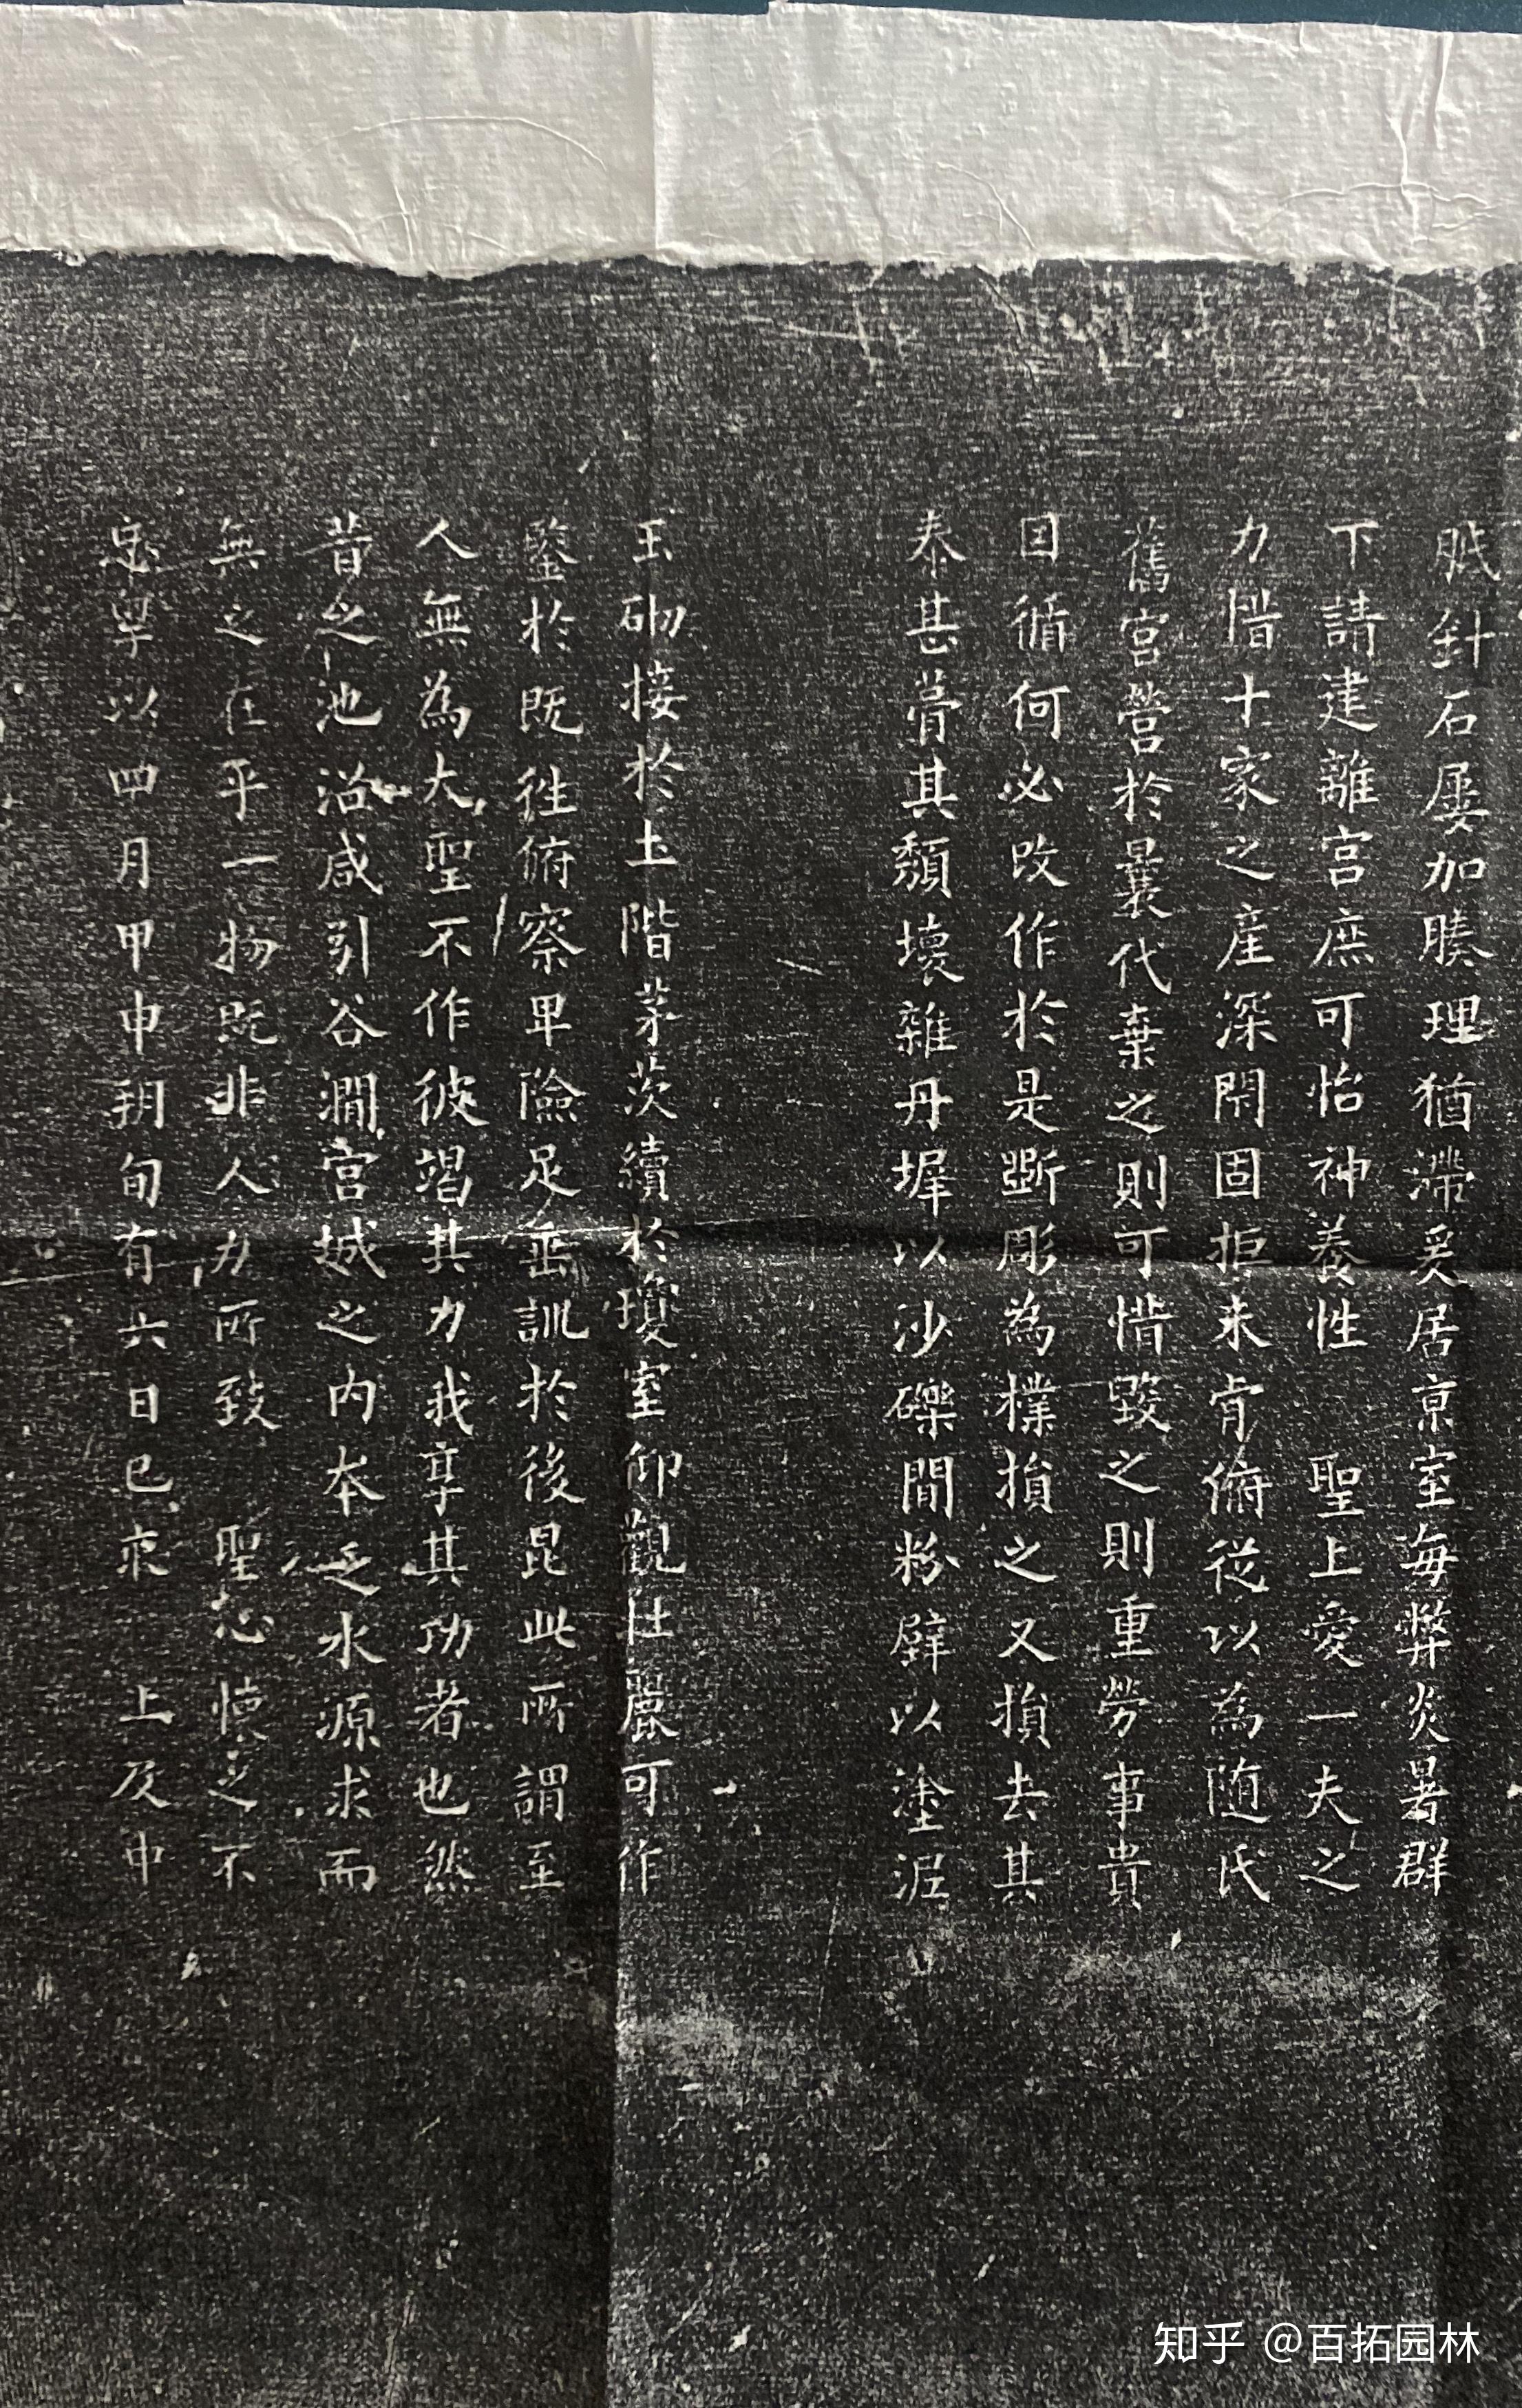 胝針石屡加腠理猶滯爰居京室每弊炎暑群
下請建離宮庶可怡神養性 聖上愛一夫之
力惜十家之産深閇固拒未肯俯從以為隨氏
舊宮營於曩代棄之則可惜毀之則重勞事貴
因循何必改作於是斲彫為樸損之又損去其
泰甚葺其頽壞雜丹墀以沙礫間粉壁以塗泥
玉砌接於土階茅茨續於瓊室仰觀壮麗可作
鑒於既往俯察卑儉足垂訓於後昆此所謂至
人無為大聖不作彼竭其力我享其功者也然
昔之池沼咸引谷澗宮城之内本乏水源求而
無之在乎一物既非人力所致 聖心懷之不
忘粵以四月甲申朔旬有六日己亥 上及中
知乎 @百拓园林